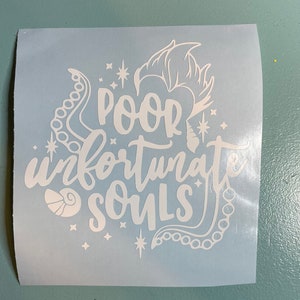 POOR
unfortunate
SOULS